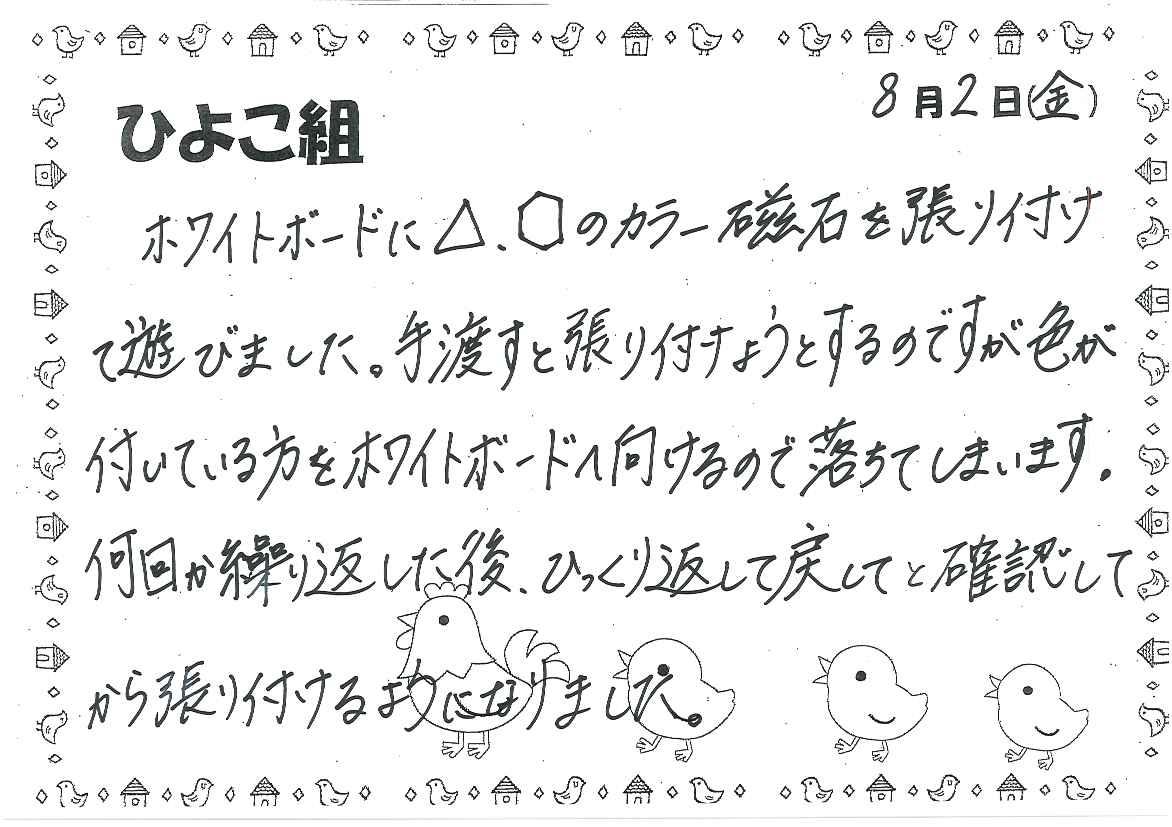 8月2日(金)
ひよこ組
ホワイトボードに△、⬡のカラー磁石を張り付け
て遊びました。手渡すと張り付けようとするのですが色が
付いている方をホワイトボードへ向けるので落ちてしまいます。
何回か繰り返した後、ひっくり返して戻してと確認して
から張り付けるようになりました。